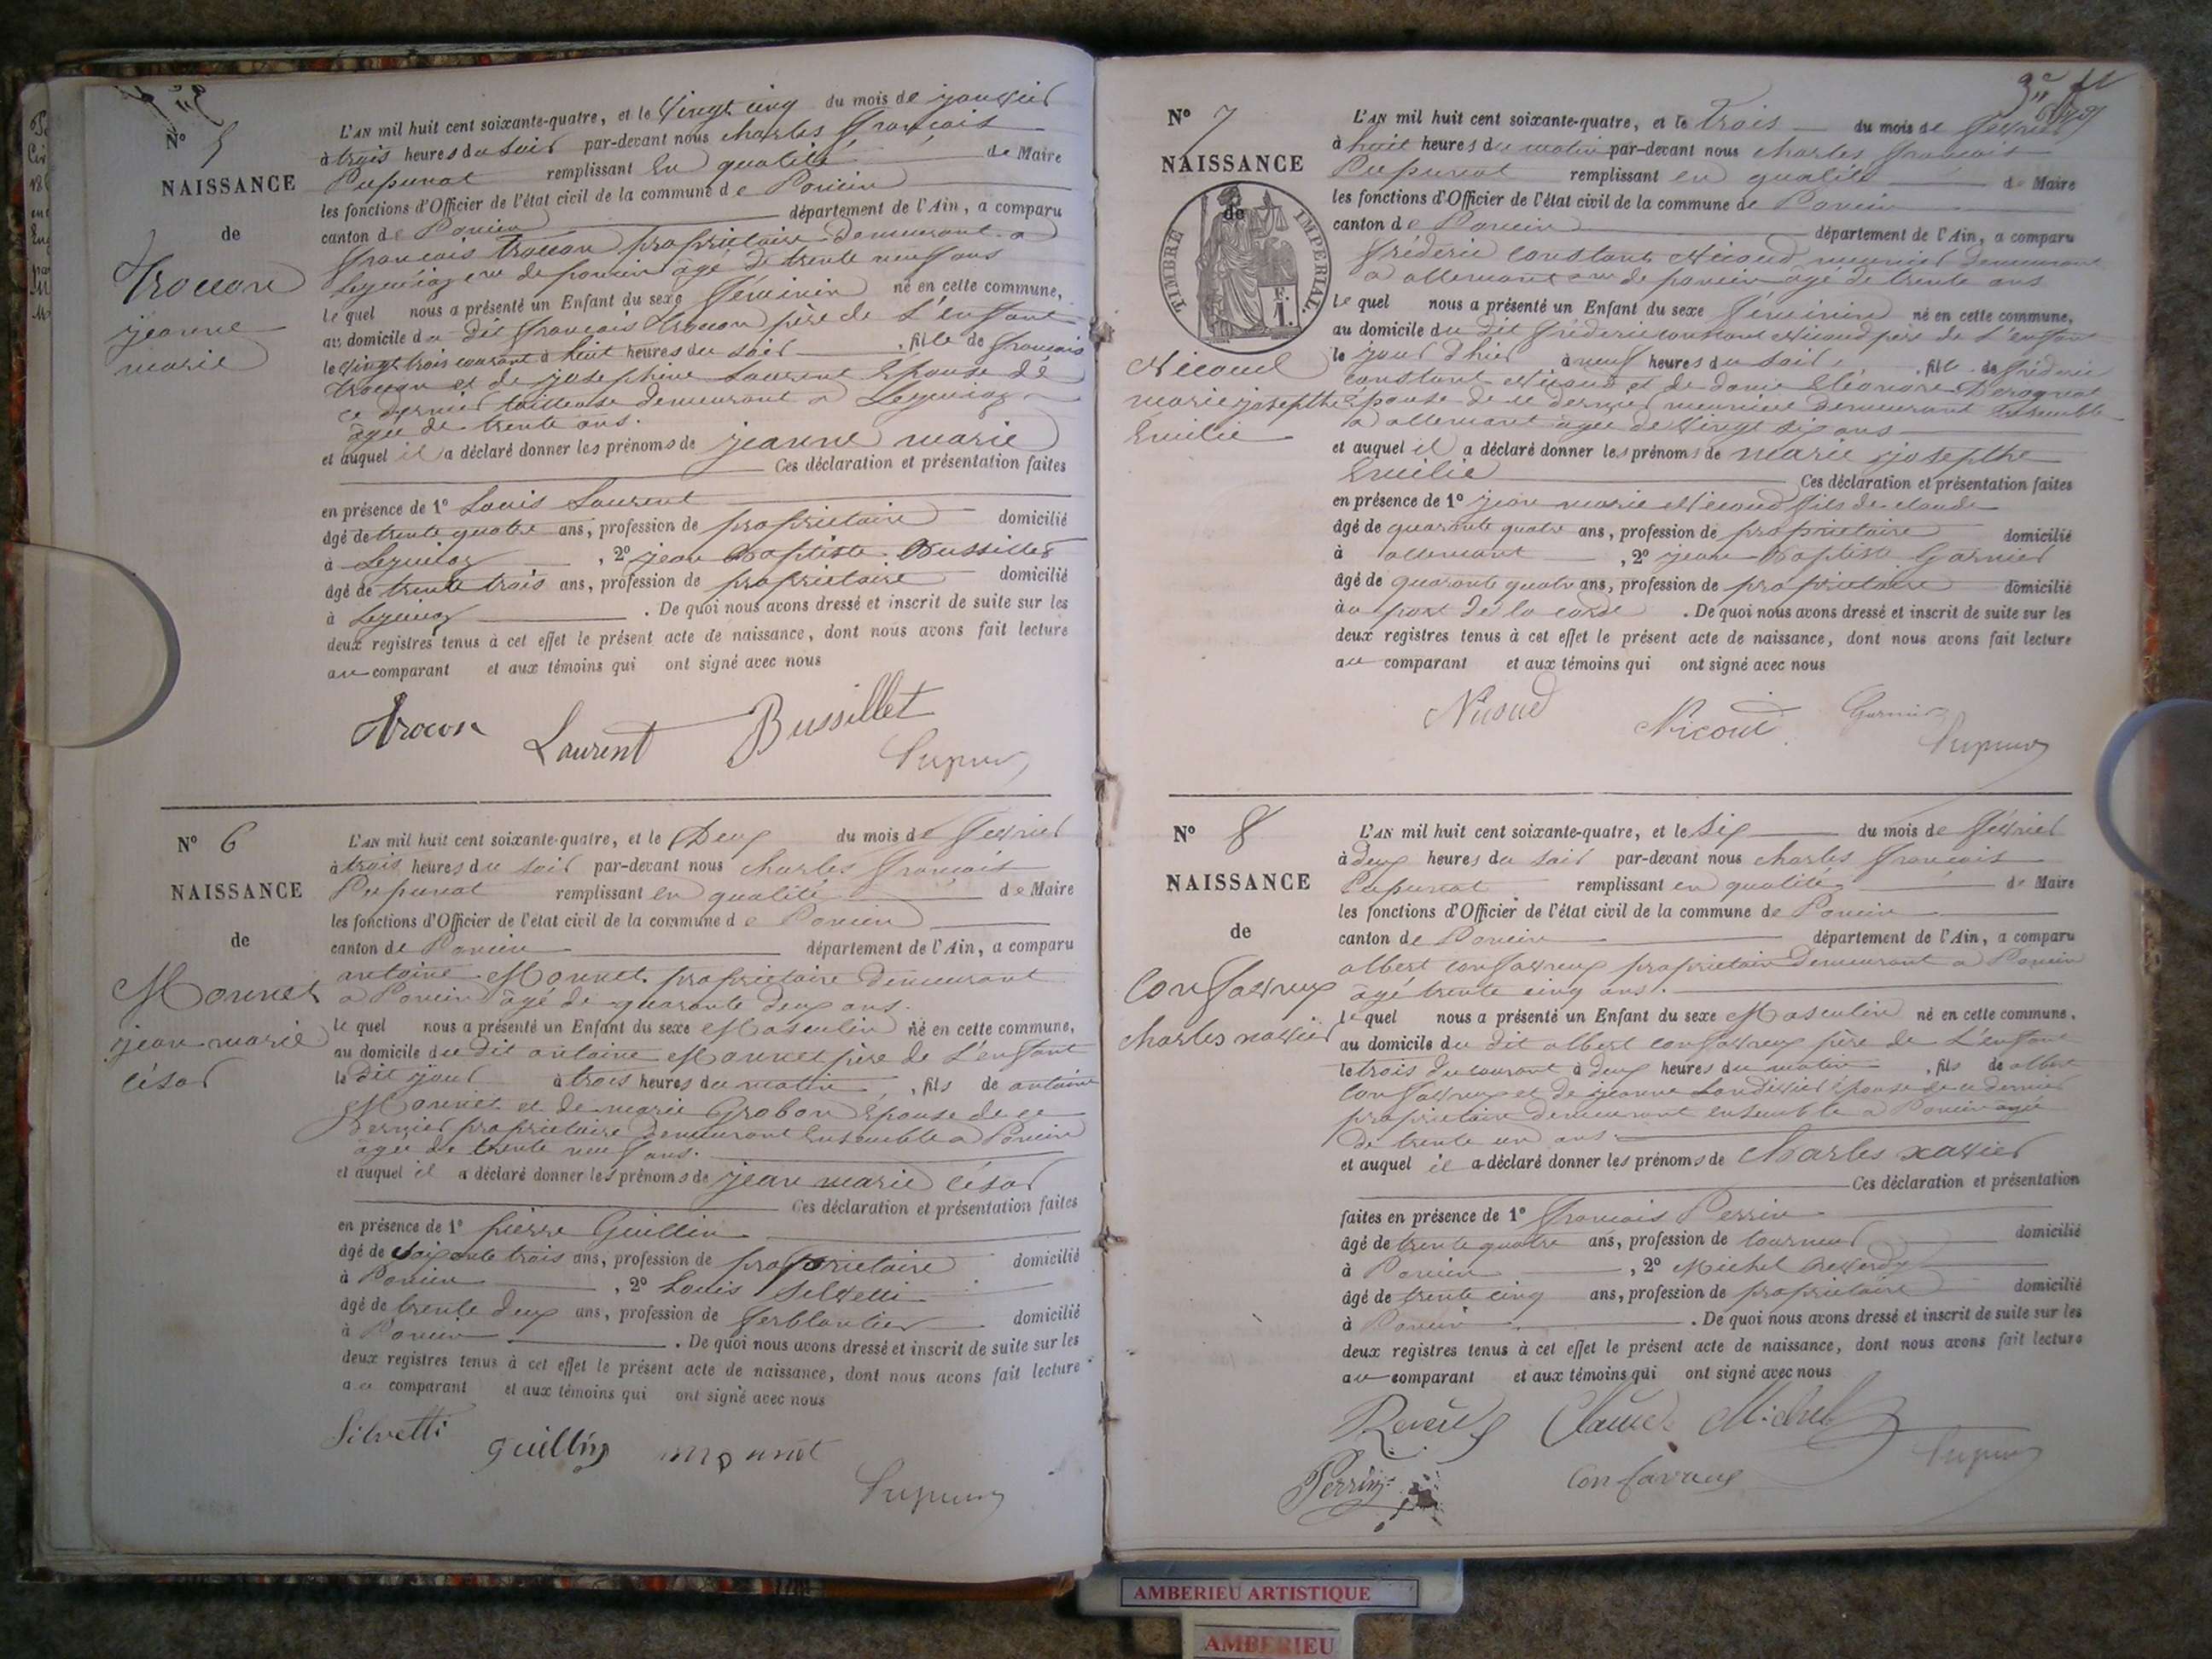 Nº 5
NAISSANCE
de
Trocon
jeanne
marie
L'AN mil huit cent soixante-quatre, et le vingt cinq du mois de janvier
à trois heures du soir par-devant nous charles françois
Pupunat remplissant en qualité de Maire
les fonctions d'Officier de l'état civil de la commune de Poncin
canton de Poncin département de l'Ain, a comparu
françois trocon propriétaire demeurant a
Leymiaz cne de poncin âgé de trente neuf ans
le quel nous a présenté un Enfant du sexe féminin né en cette commune,
au domicile du dit françois trocon père de L'enfant
le vingt trois courant à huit heures du soir , fille de françois
trocon et de josephine Laurent Epouse de
ce dernier tailleuse demeurant a Leymiaz
âgée de trente ans.
et auquel il a déclaré donner les prénoms de jeanne marie
Ces déclaration et présentation faites
en présence de 1º Louis Laurent
âgé de trente quatre ans, profession de propriétaire domicilié
à Leymiaz , 2º jean Baptiste Bussillet
âgé de trente trois ans, profession de propriétaire domicilié
à Leymiaz . De quoi nous avons dressé et inscrit de suite sur les
deux registres tenus à cet effet le présent acte de naissance, dont nous avons fait lecture
au comparant et aux témoins qui ont signé avec nous
Trocon Laurent Bussillet
Nº 6
NAISSANCE
de
Monnet
jean marie
césar
L'AN mil huit cent soixante-quatre, et le Deux du mois de fevrier
à trois heures du soir par-devant nous charles françois
Pupunat remplissant en qualité de Maire
les fonctions d'Officier de l'état civil de la commune de Poncin
canton de Poncin département de l'Ain, a comparu
antoine Monnet propriétaire demeurant
a Poncin âgé de quarante deux ans.
le quel nous a présenté un Enfant du sexe Masculin né en cette commune,
au domicile du dit antoine Monnet père de L'enfant
le dit jour à trois heures du matin , fils de antoine
Monnet et de marie Grobon Epouse de ce
dernier propriétaire demeurant Ensemble a Poncin
âgée de trente neuf ans.
et auquel il a déclaré donner les prénoms de jean marie césar
Ces déclaration et présentation faites
en présence de 1º pierre Guillin
âgé de soixante trois ans, profession de propriétaire domicilié
à Poncin , 2º Louis Silvetti
âgé de trente deux ans, profession de ferblantier domicilié
à Poncin . De quoi nous avons dressé et inscrit de suite sur les
deux registres tenus à cet effet le présent acte de naissance, dont nous avons fait lecture
au comparant et aux témoins qui ont signé avec nous
Silvetti guillin monnet
Nº 7
NAISSANCE
de
TIMBRE IMPERIAL.
F.
1.
Nicoud
marie josepthe
Emilie
L'AN mil huit cent soixante-quatre, et le trois du mois de fevrier
à huit heures du matin par-devant nous charles françois
Pupunat remplissant en qualité de Maire
les fonctions d'Officier de l'état civil de la commune de Poncin
canton de Poncin département de l'Ain, a comparu
fréderic constant Nicoud meunier demeurant
a allemant cne de poncin âgé de trente ans
le quel nous a présenté un Enfant du sexe féminin né en cette commune,
au domicile du dit fréderic constant Nicoud père de L'enfant
le jour d'hier à neuf heures du soir , fille de fréderic
constant Nicoud et de donie Eléonore Derognat
épouse de ce dernier meuniere demeurant Ensemble
a allemant âgée de vingt six ans
et auquel il a déclaré donner les prénoms de marie josepthe
Emilie Ces déclaration et présentation faites
en présence de 1º jean marie Nicoud fils de claude
âgé de quarante quatre ans, profession de propriétaire domicilié
à allemant , 2º jean Baptiste Garnier
âgé de quarante quatre ans, profession de propriétaire domicilié
à au port de la corde . De quoi nous avons dressé et inscrit de suite sur les
deux registres tenus à cet effet le présent acte de naissance, dont nous avons fait lecture
au comparant et aux témoins qui ont signé avec nous
Nicoud Nicoud Garnier
Nº 8
NAISSANCE
de
Confavreux
charles xavier
L'AN mil huit cent soixante-quatre, et le six du mois de février
à deux heures du soir par-devant nous charles françois
Pupunat remplissant en qualité de Maire
les fonctions d'Officier de l'état civil de la commune de Poncin
canton de Poncin département de l'Ain, a comparu
albert confavreux propriétaire demeurant a Poncin
âgé trente cinq ans.
le quel nous a présenté un Enfant du sexe Masculin né en cette commune,
au domicile du dit albert confavreux père de L'enfant
le trois du courant à deux heures du matin , fils de albert
confavreux et de jeanne Landivier épouse de ce dernier
propriétaire demeurant ensemble a Poncin âgée
de trente un ans
et auquel il a déclaré donner les prénoms de Charles xavier
Ces déclaration et présentation
faites en présence de 1º françois Perrin
âgé de trente quatre ans, profession de tourneur domicilié
à Poncin , 2º Michel Reverdy
âgé de trente cinq ans, profession de propriétaire domicilié
à Poncin . De quoi nous avons dressé et inscrit de suite sur les
deux registres tenus à cet effet le présent acte de naissance, dont nous avons fait lecture
au comparant et aux témoins qui ont signé avec nous
Claude Michel
Perrin Confavreux
AMBERIEU ARTISTIQUE
AMBERIEU